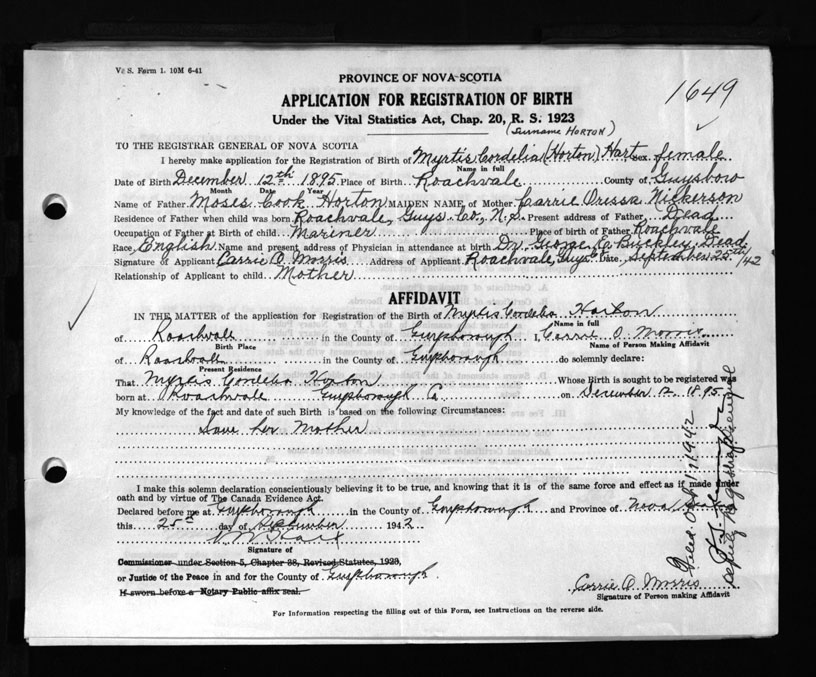 V. S. Form 1. 10M 6-41
1649
PROVINCE OF NOVA SCOTIA
APPLICATION FOR REGISTRATION OF BIRTH
Under the Vital Statistics Act, Chap. 20, R. S. 1923
(Surname HORTON)
TO THE REGISTRAR GENERAL OF NOVA SCOTIA
I hereby make application for the Registration of Birth of Myrtis Cordelia (Horton) Hart sex female
Name in full
Date of Birth December 12th 1895 Place of Birth Roachvale County of Guysboro
Month Date Year
Name of Father Moses Cook Horton MAIDEN NAME of Mother Carrie Oressa Nickerson
Residence of Father when child was born Roachvale, Guys. Co., N.S. Present address of Father Dead
Occupation of Father at Birth of child Mariner Place of Birth of Father Roachvale
Race, English Name and present address of Physician in attendance at birth Dr. George E. Buckley, Dead
Signature of Applicant Carrie O. Morris Address of Applicant Roachvale, Guys Co Date, September 25th/42
Relationship of Applicant to child Mother
AFFIDAVIT
IN THE MATTER of the application for Registration of the Birth of Myrtis Cordelia Horton
Name in full
of Roachvale in the County of Guysborough I, Carrie O. Morris
Birth Place Name of Person Making Affidavit
of Roachvale in the County of Guysborough do solemnly declare:
Present Residence
That Myrtis Cordelia Horton Whose Birth is sought to be registered was
born at Roachvale Guysborough Co. on December 12 1895
My knowledge of the fact and date of such Birth is based on the following Circumstances:
I am her Mother
I make this solemn declaration conscientiously believing it to be true, and knowing that it is of the same force and effect as if made under
oath and by virtue of The Canada Evidence Act.
Declared before me at Guysborough in the County of Guysborough and Province of Nova Scotia
this 25th day of September 1942
Signature of
Commissioner under Section 5, Chapter 38, Revised Statutes, 1923,
or Justice of the Peace in and for the County of Guysborough.
If sworn before a Notary Public affix seal.
Carrie O. Morris
Signature of Person making Affidavit
For Information respecting the filling out of this Form, see Instructions on the reverse side.
Deputy Registrar General